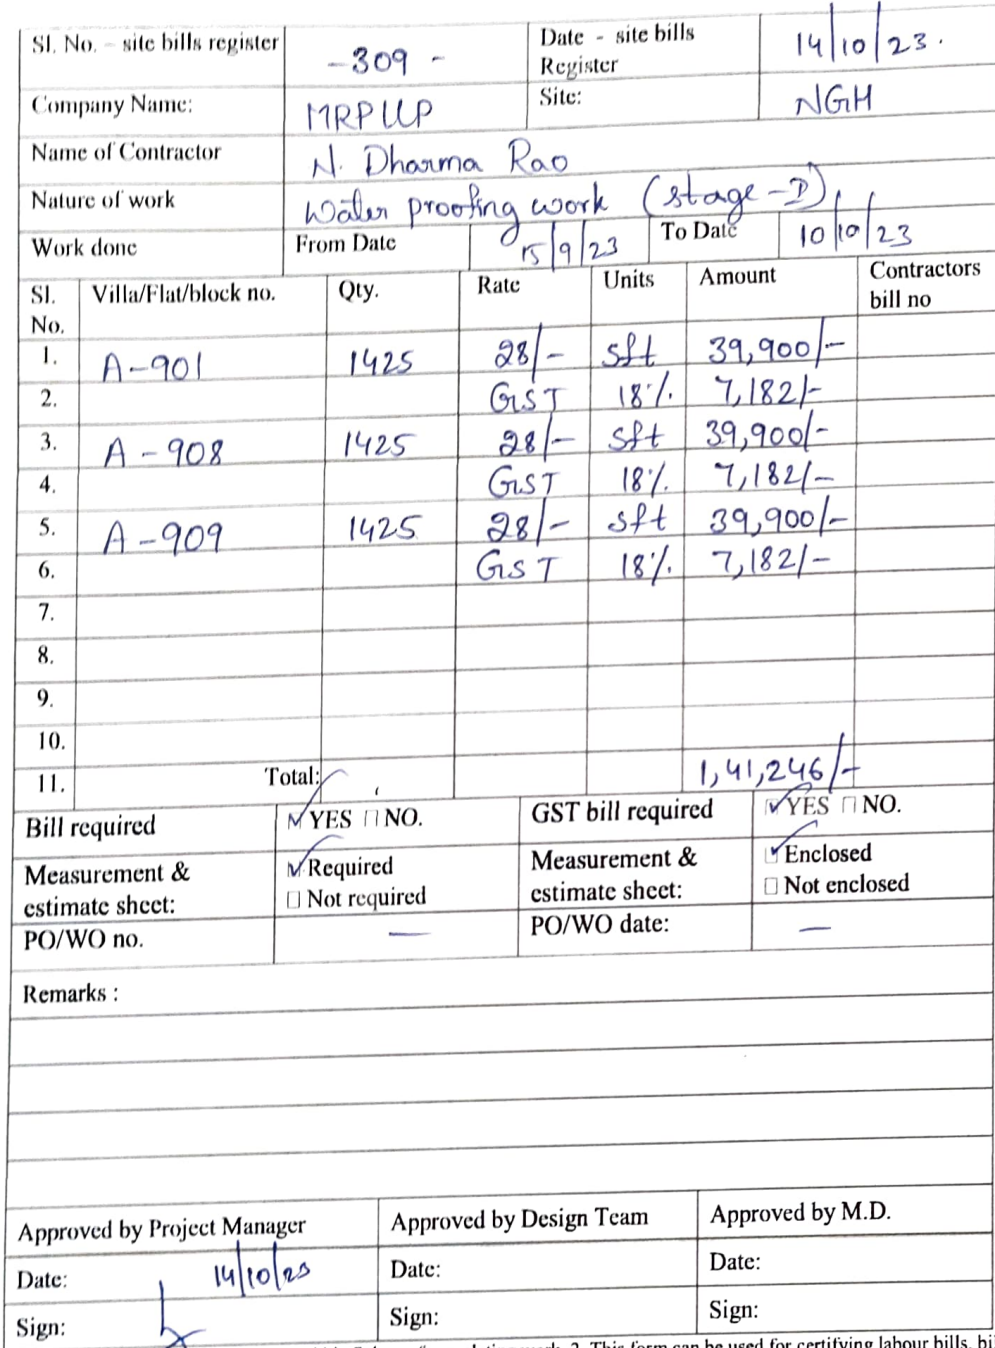 Sl. No. – site bills register -309- Date - site bills Register 14/10/23.
Company Name: MRPLLP Site: NGH
Name of Contractor N. Dharma Rao
Nature of work Water proofing work (stage-D)
Work done From Date 15/9/23 To Date 10/10/23
Sl. No. Villa/Flat/block no. Qty. Rate Units Amount Contractors bill no
1. A-901 1425 28/- sft 39,900/-
2. GST 18%. 7,182/-
3. A-908 1425 28/- sft 39,900/-
4. GST 18%. 7,182/-
5. A-909 1425 28/- sft 39,900/-
6. GST 18%. 7,182/-
7.
8.
9.
10.
11. Total: 1,41,246/-
Bill required ☑ YES ☐ NO. GST bill required ☑ YES ☐ NO.
Measurement & estimate sheet: ☑ Required ☐ Not required Measurement & estimate sheet: ☑ Enclosed ☐ Not enclosed
PO/WO no. — PO/WO date: —
Remarks :
Approved by Project Manager Approved by Design Team Approved by M.D.
Date: 14/10/23 Date: Date:
Sign: Sign: Sign:
2. This form can be used for certifying labour bills,